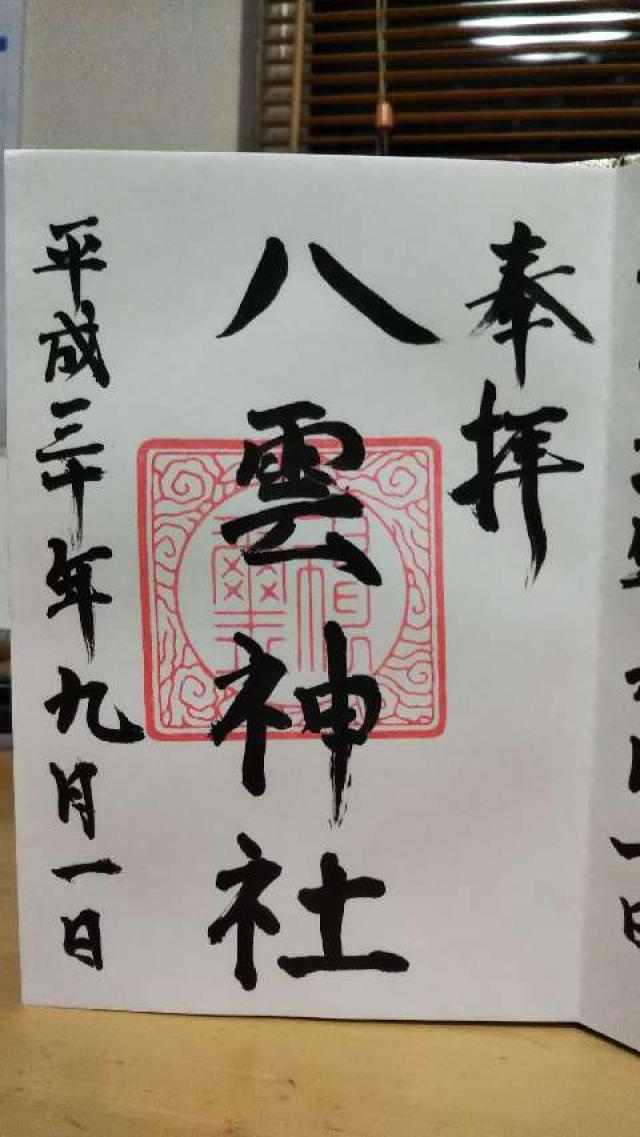 奉拝
八雲神社
平成三十年九月一日